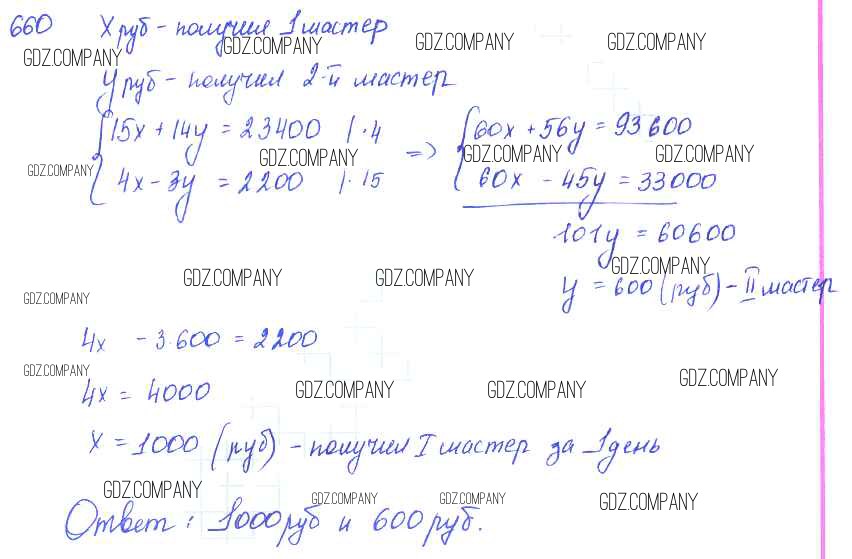 660 X руб - получил 1 мастер
GDZ.COMPANY GDZ.COMPANY GDZ.COMPANY GDZ.COMPANY
y руб - получил 2-й мастер
{15x + 14y = 23400 | · 4 => {60x + 56y = 93600
GDZ.COMPANY GDZ.COMPANY GDZ.COMPANY GDZ.COMPANY
4x - 3y = 2200 | · 15 60x - 45y = 33000
101y = 60600
GDZ.COMPANY GDZ.COMPANY GDZ.COMPANY GDZ.COMPANY
y = 600 (руб) - II мастер
4x - 3·600 = 2200
GDZ.COMPANY GDZ.COMPANY GDZ.COMPANY GDZ.COMPANY
4x = 4000
x = 1000 (руб) - получил I мастер за 1 день
GDZ.COMPANY GDZ.COMPANY GDZ.COMPANY GDZ.COMPANY
Ответ: 1000 руб и 600 руб.